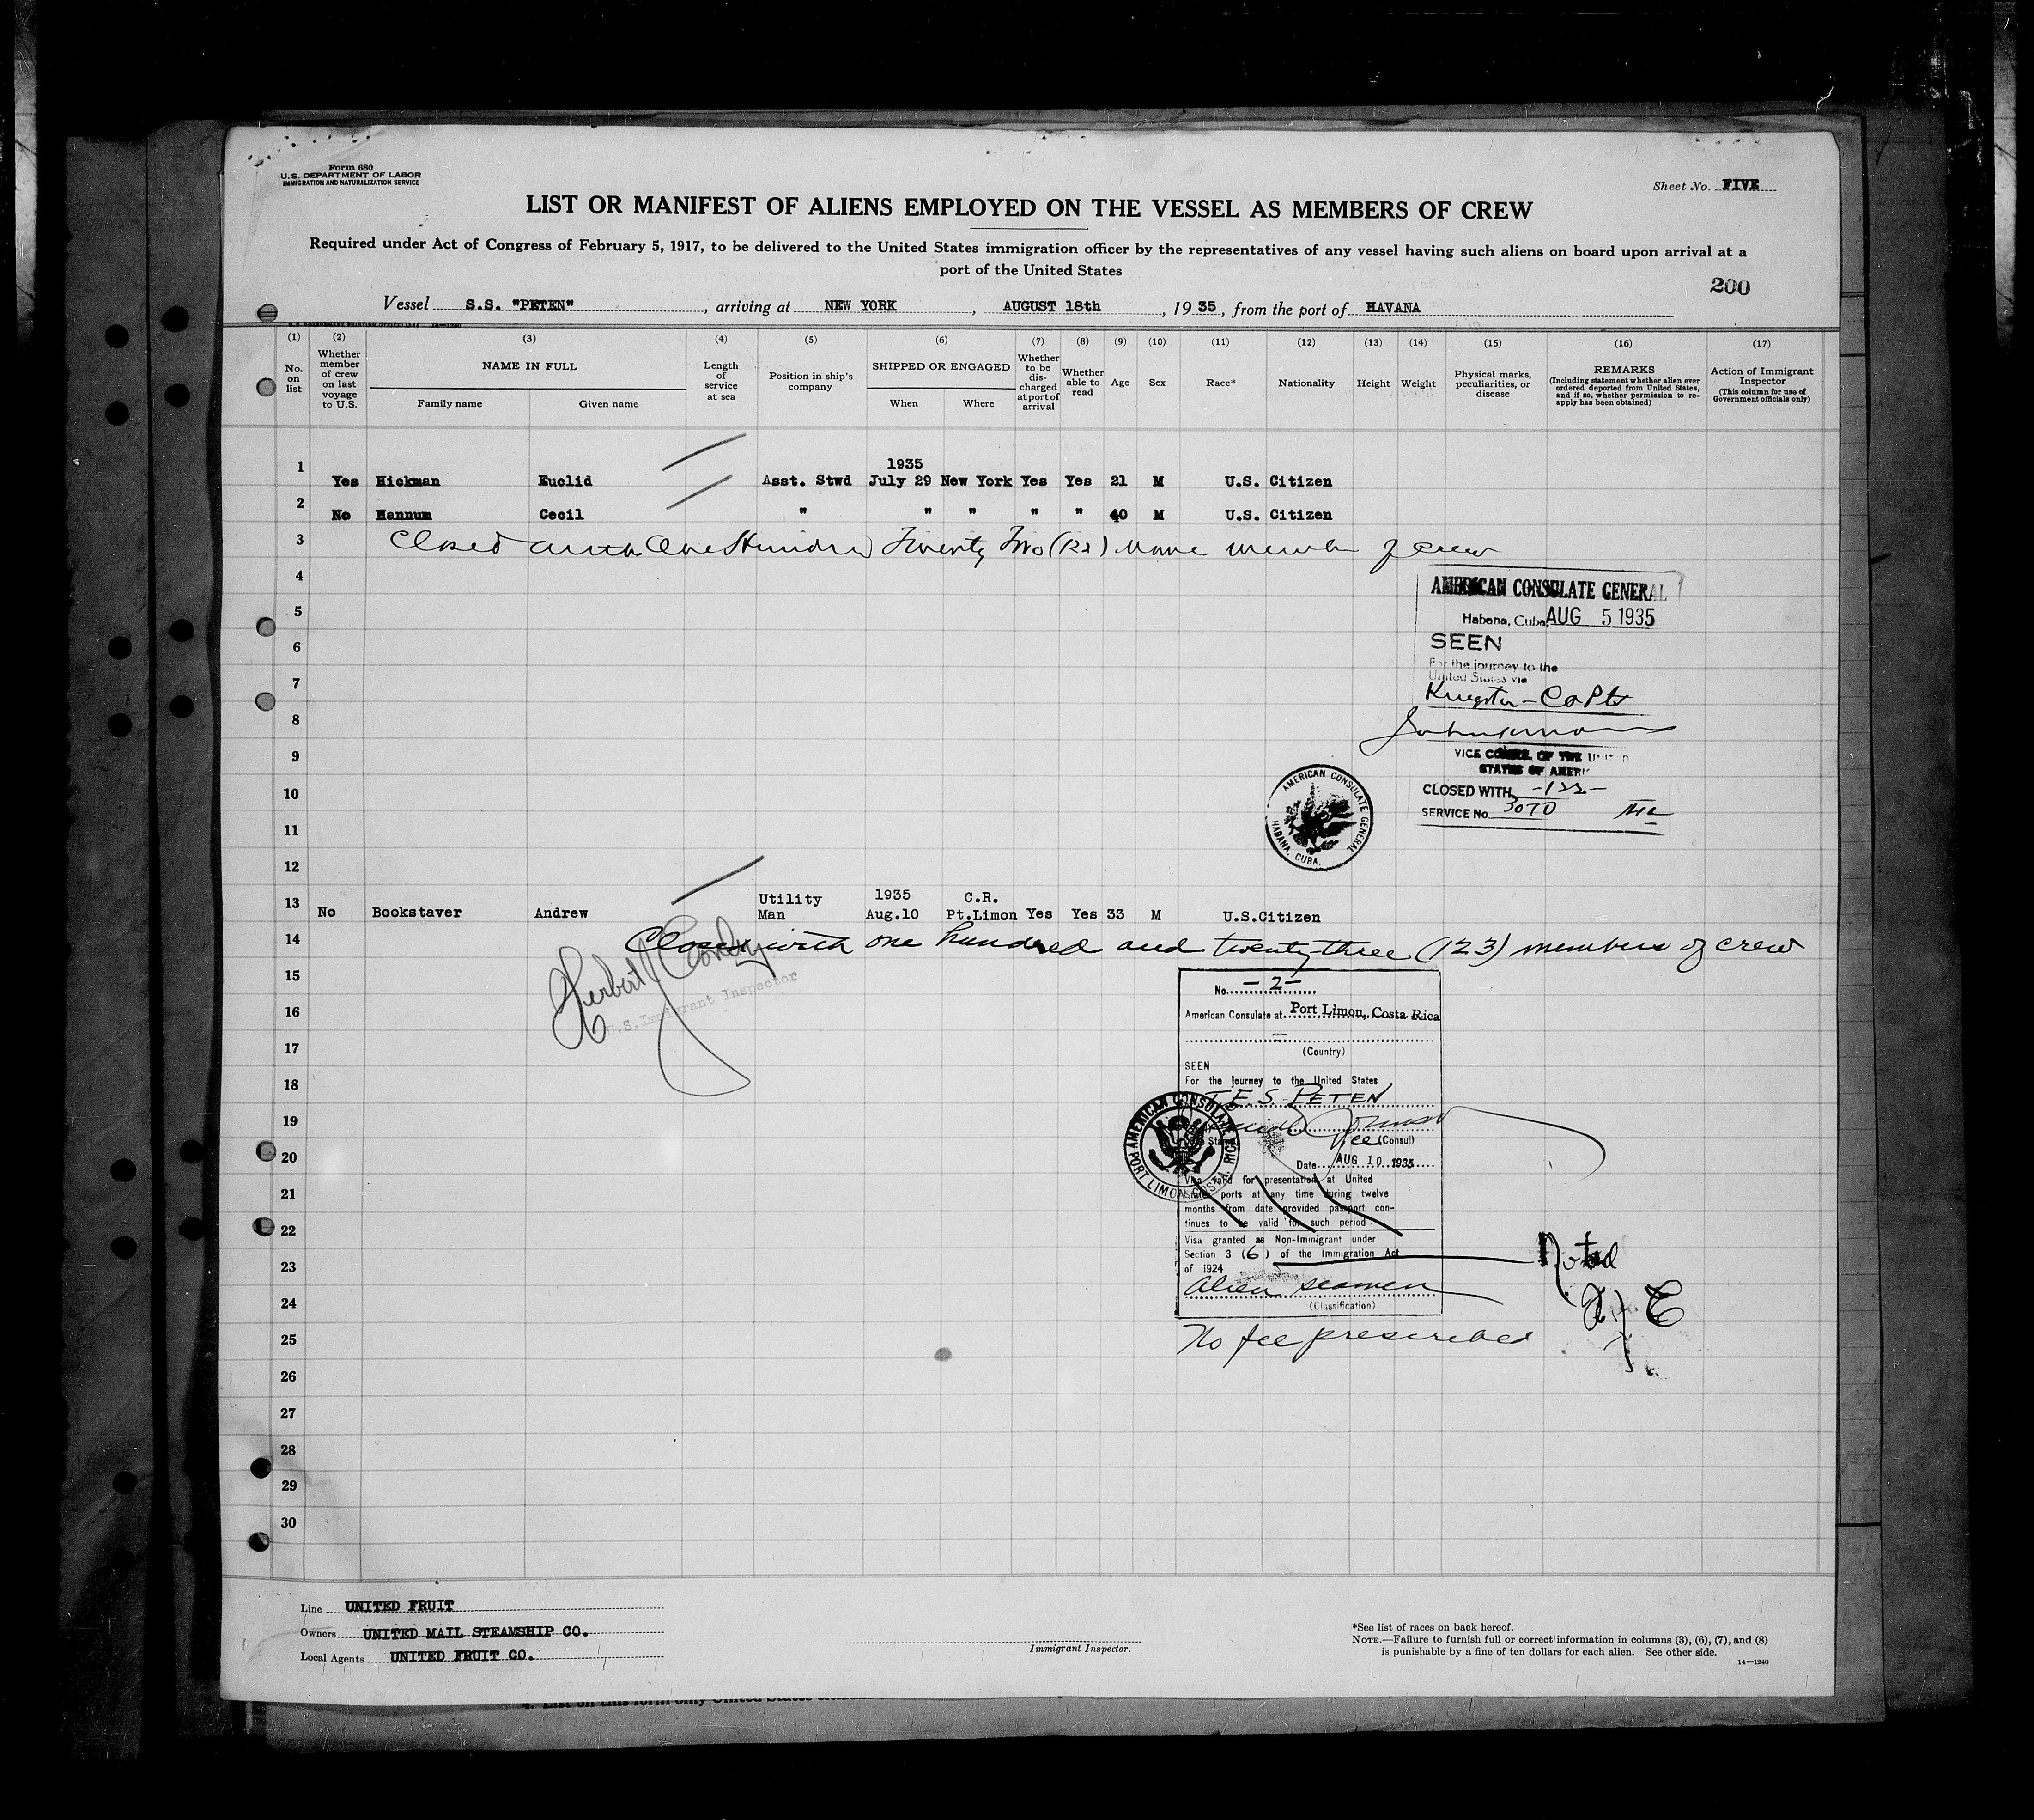 Form 680
U.S. DEPARTMENT OF LABOR
IMMIGRATION AND NATURALIZATION SERVICE
Sheet No. FIVE
LIST OR MANIFEST OF ALIENS EMPLOYED ON THE VESSEL AS MEMBERS OF CREW
Required under Act of Congress of February 5, 1917, to be delivered to the United States immigration officer by the representatives of any vessel having such aliens on board upon arrival at a
port of the United States
200
Vessel S.S. "PETEN", arriving at NEW YORK, AUGUST 18th, 1935, from the port of HAVANA
(1) No. on list
(2) Whether member of crew on last voyage to U.S.
(3) NAME IN FULL Family name Given name
(4) Length of service at sea
(5) Position in ship's company
(6) SHIPPED OR ENGAGED When Where
(7) Whether to be discharged at port of arrival
(8) Whether able to read
(9) Age
(10) Sex
(11) Race*
(12) Nationality
(13) Height
(14) Weight
(15) Physical marks, peculiarities, or disease
(16) REMARKS (Including statement whether alien ever ordered deported from United States, and if so, whether permission to re-apply has been obtained)
(17) Action of Immigrant Inspector (This column for use of Government officials only)
1935
1 Yes Hickman Euclid Asst. Stwd July 29 New York Yes Yes 21 M U.S. Citizen
2 No Hannum Cecil " " " " " 40 M U.S. Citizen
3 Closed with One Hundred Twenty Two (122) members of crew
4
AMERICAN CONSULATE GENERAL
5
Habana, Cuba, AUG 5 1935
6
SEEN
For the journey to the
United States via
7
Kingston - Ca Pts
8
9
VICE CONSUL OF THE UNITED
STATES OF AMERI
10
CLOSED WITH -122-
SERVICE No. 3070
AMERICAN CONSULATE GENERAL
HABANA, CUBA.
11
12
Utility 1935 C.R.
13 No Bookstaver Andrew Man Aug.10 Pt.Limon Yes Yes 33 M U.S.Citizen
14 Closed with one hundred and twenty-three (123) members of crew
U.S. Immigrant Inspector
15
No. -2-
16
American Consulate at Port Limon, Costa Rica
17
(Country)
SEEN
18
For the journey to the United States
T.E.S. PETEN
19
Vice (Consul)
20
Date AUG 10 1935
AMERICAN CONSULAR
PORT LIMON, COSTA RICA
21
Visa valid for presentation at United
States ports at any time during twelve
months from date provided passport con-
tinues to be valid for such period
22
Visa granted as Non-Immigrant under
Section 3 (6) of the Immigration Act
of 1924
23
Noted
Alien seamen
24
(Classification)
25
No fee prescribed
26
27
28
29
30
Line UNITED FRUIT
Owners UNITED MAIL STEAMSHIP CO.
Local Agents UNITED FRUIT CO.
Immigrant Inspector.
*See list of races on back hereof.
NOTE.—Failure to furnish full or correct information in columns (3), (6), (7), and (8)
is punishable by a fine of ten dollars for each alien. See other side.
14—1240